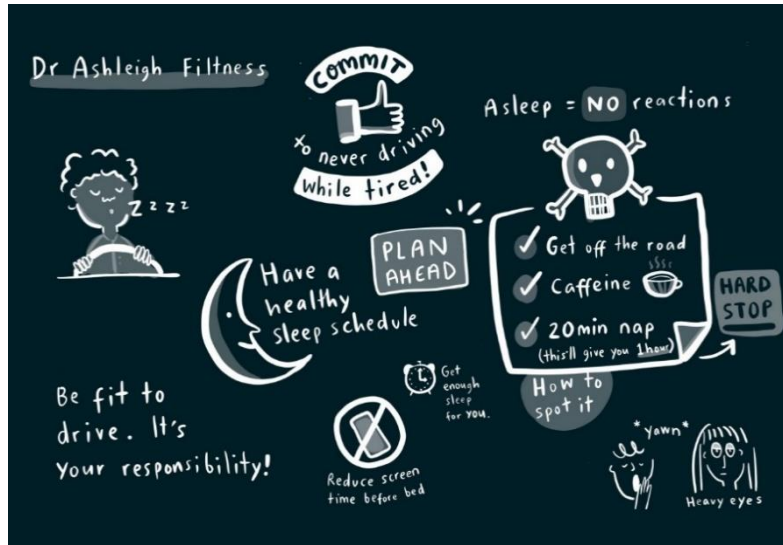 Dr Ashleigh Filtness
COMMIT
to never driving
while tired!
Asleep = NO reactions
zzzz
PLAN
AHEAD
Get off the road
Caffeine
20min nap
(this'll give you 1hour)
HARD
STOP
Have a
healthy
sleep schedule
Get
enough
sleep
for you.
How to
spot it
Be fit to
drive. It's
your responsibility!
Reduce screen
time before bed
*yawn*
Heavy eyes